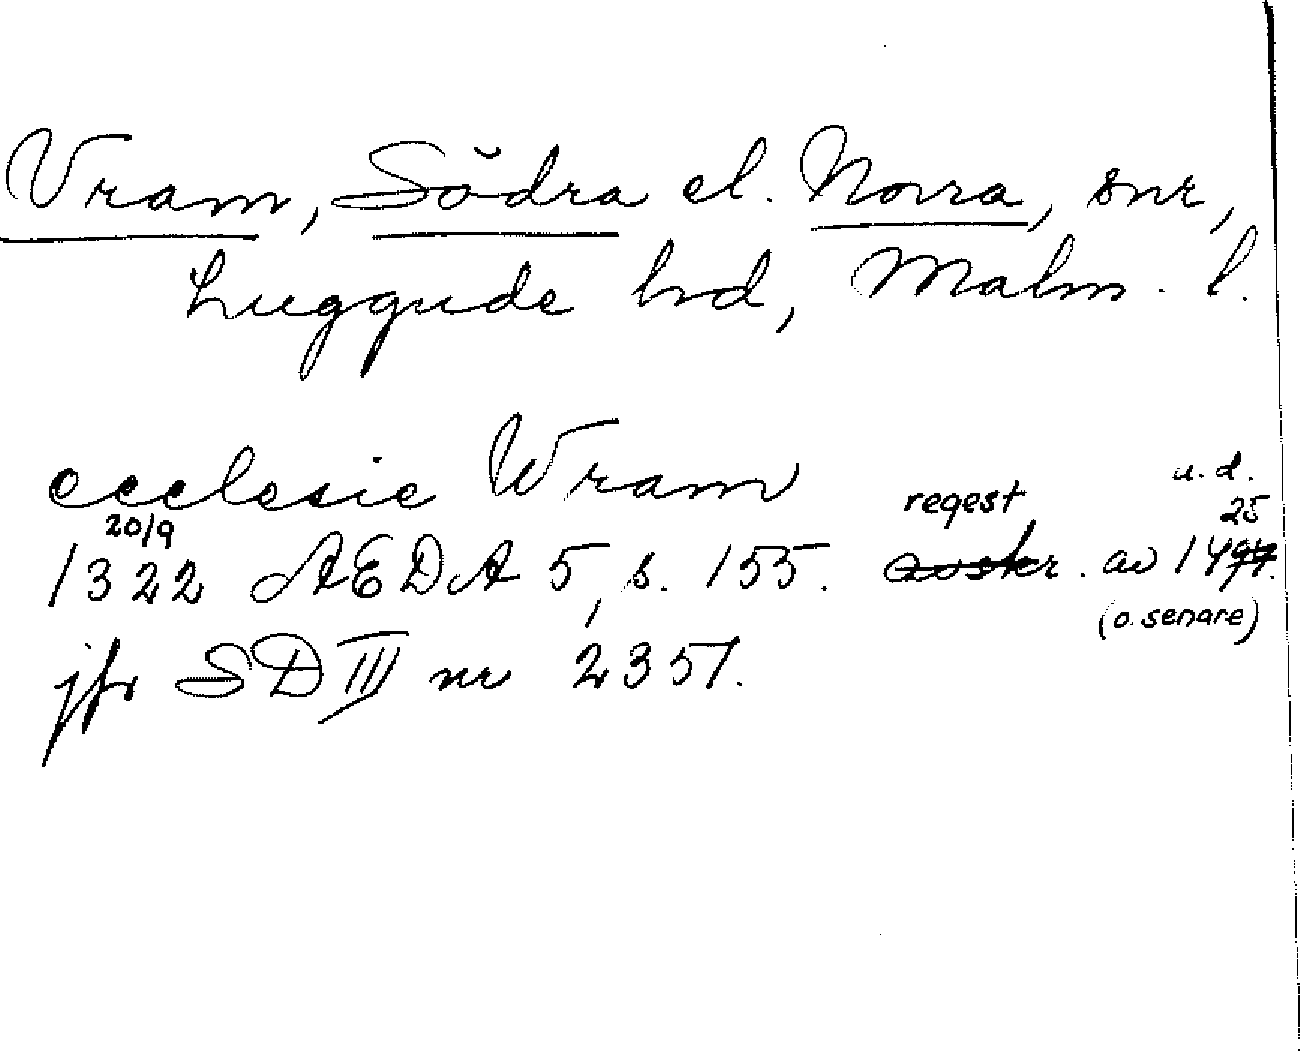 Vram, Södra el. Norra, snr,
Luggude hd, Malm. l.
ecclesie Wram
u. d.
regest
25
20/9
1322 AEDA 5, s. 155. avskr. av 1494.
(o. senare)
jfr SD III nr 2351.